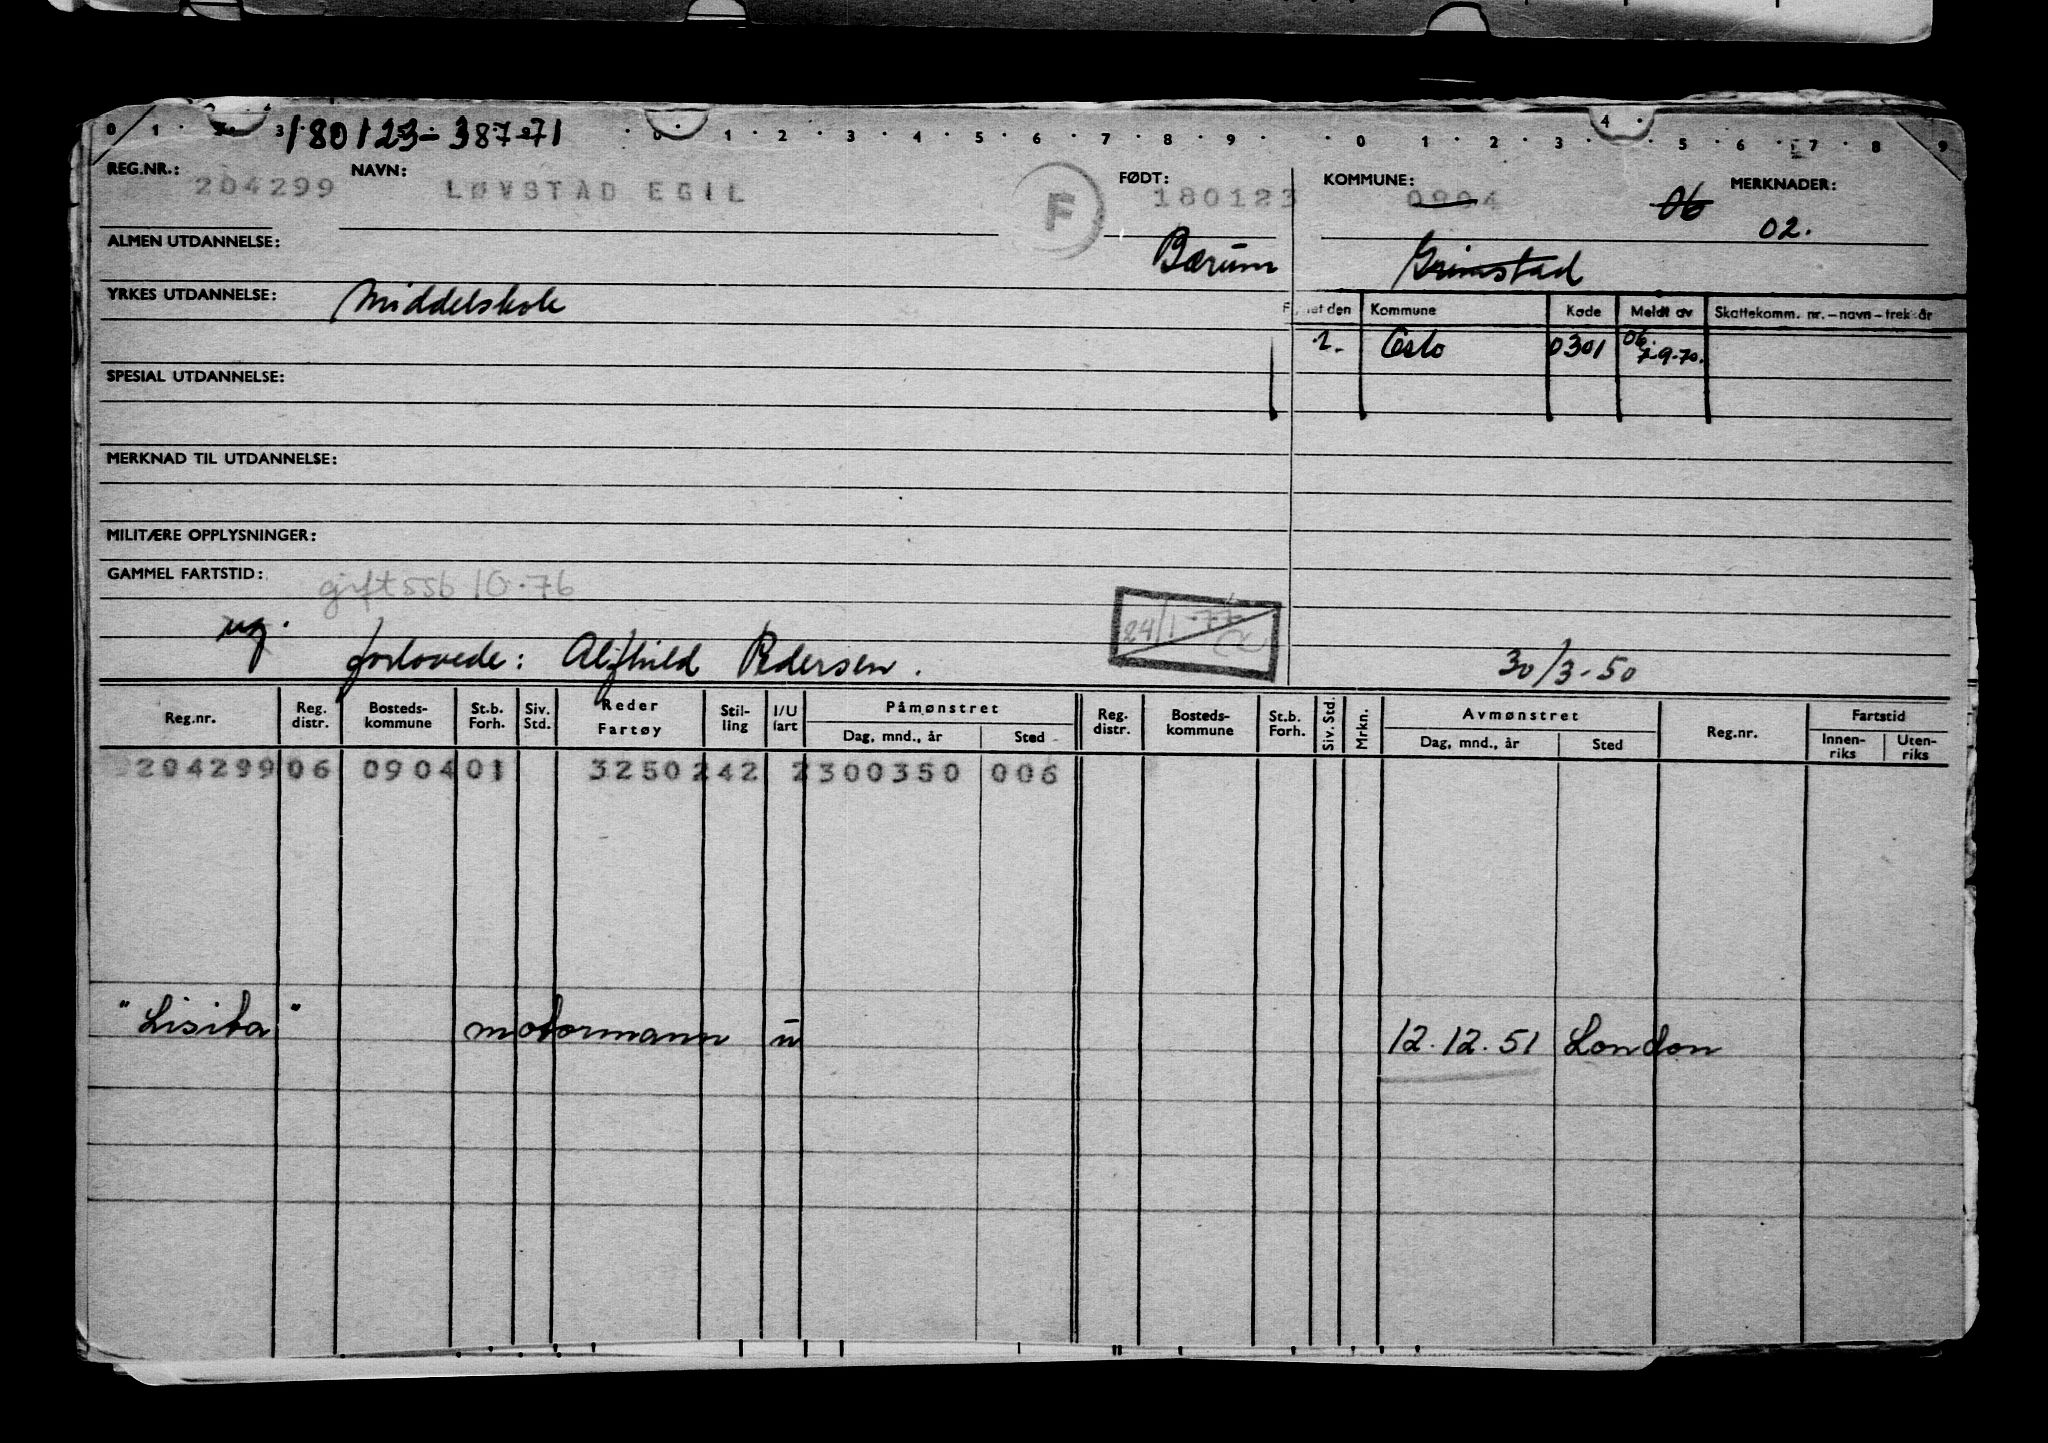 180123-38771
0 1 . 3 . 0 . 1 . 2 . 3 . 4 . 5 . 6 . 7 . 8 . 9 . . 0 . 1 . 2 . 3 . 4 . 5 . 6 . 7 . 8 . 9
REG.NR.: 204299 NAVN: LØVSTAD EGIL F FØDT: 180123 KOMMUNE: 0904 06 MERKNADER: 02.
ALMEN UTDANNELSE: Bærum Grimstad
YRKES UTDANNELSE: Middelskole
den Kommune Kode Meldt av Skattekomm. nr. – navn – trekkår
1. Oslo 0301 06. 7-9-70.
SPESIAL UTDANNELSE:
MERKNAD TIL UTDANNELSE:
MILITÆRE OPPLYSNINGER:
GAMMEL FARTSTID: gift ssb 10.-76
ug. forlovede: Alfhild Pedersen. 24/1-77 30/3-50
Reg.nr. Reg. distr. Bosteds-kommune St.b. Forh. Siv. Std. Reder Fartøy Stil-ling I/U fart Påmønstret Dag, mnd., år Sted Reg. distr. Bosteds-kommune St.b. Forh. Siv. Std. Mrkn. Avmønstret Dag, mnd., år Sted Reg.nr. Fartstid Innen-riks Uten-riks
204299 06 0904 01 3250 242 2 300350 006
"Lisita" motormann u 12.12.51 London